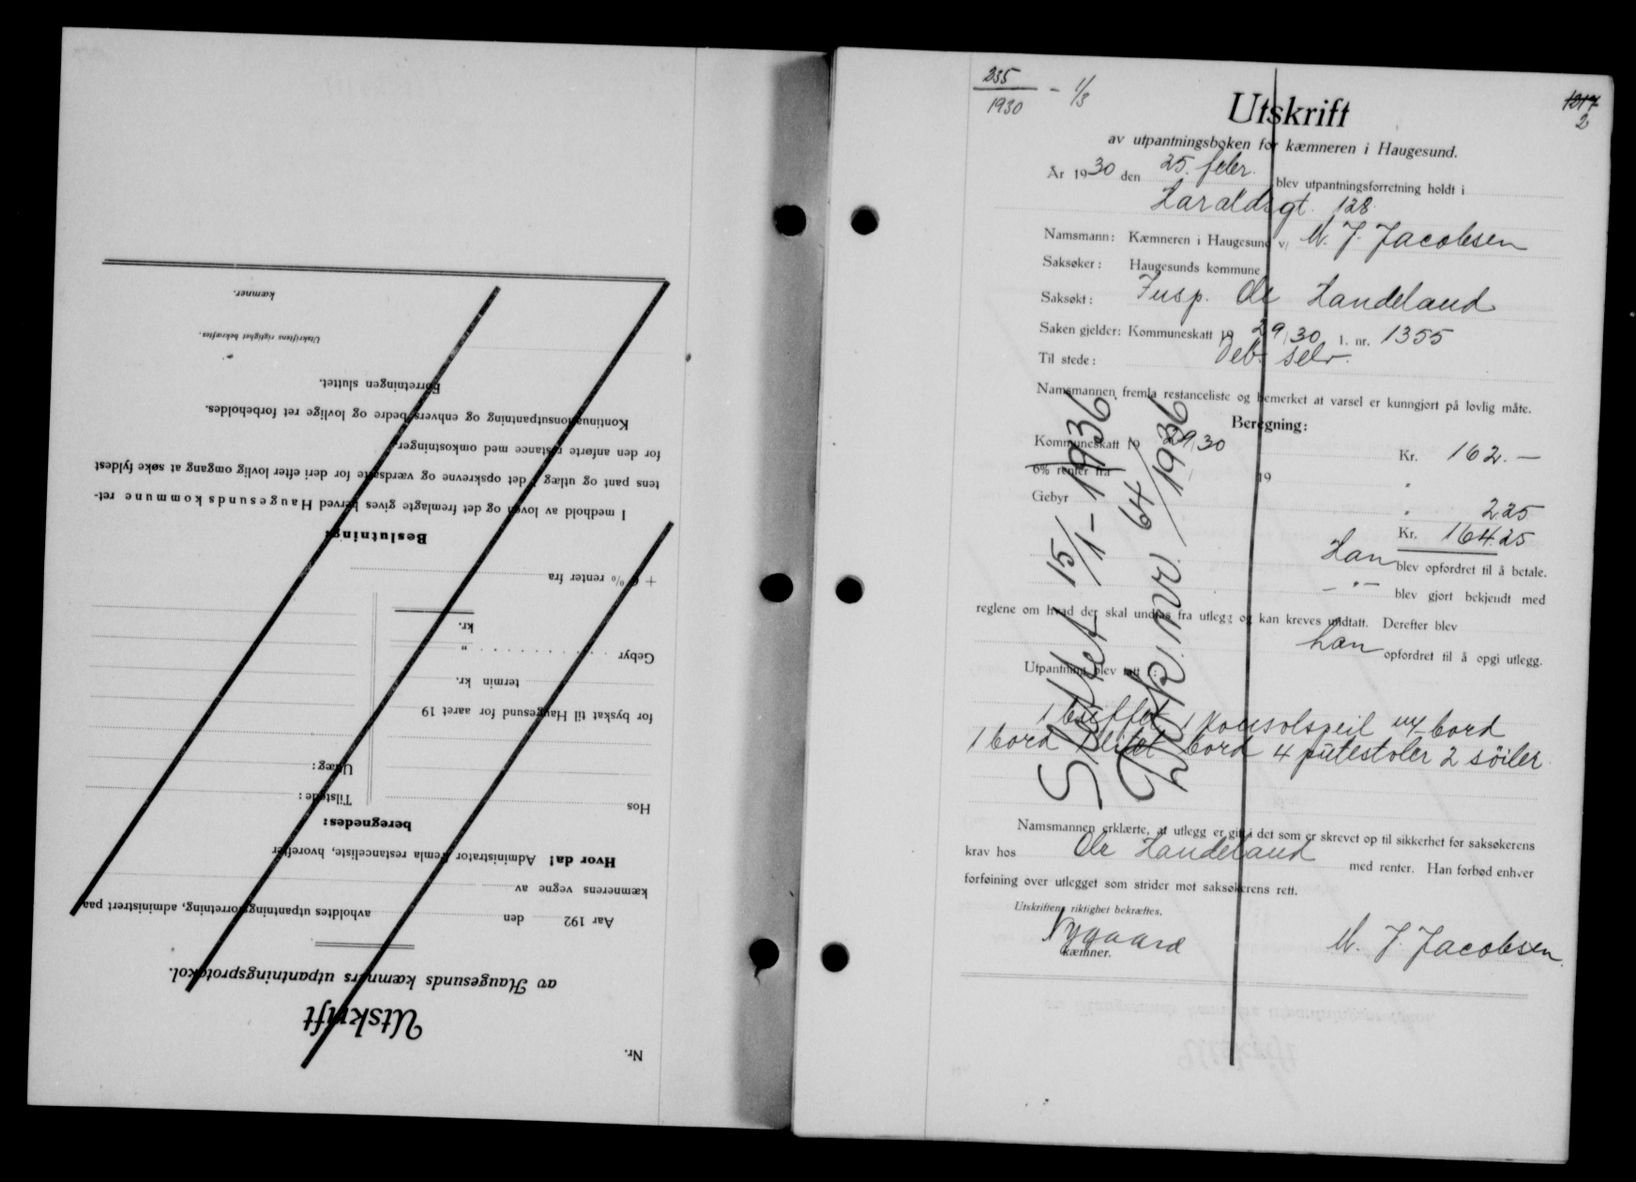 Nr.
Utskrift
av Haugesunds kæmners utpantningsprotokol.
Aar 192 den avholdtes utpantningsforretning, administrert paa
kæmnerens vegne av
Hvor da! Administrator fremla restanceliste, hvorefter
beregnedes:
Hos
Tilstede:
Utlæg:
for byskat til Haugesund for aaret 19
termin kr.
Gebyr "
kr.
+ 6 % renter fra
Beslutning:
I medhold av loven og det fremlagte gives herved Haugesunds kommune ret-
tens pant og utlæg i det opskrevne og værdsatte for deri efter lovlig omgang at søke fyldest
for den anførte restance med omkostninger.
Kontinuationsutpantning og enhver bedre og lovlige ret forbeholdes.
Forretningen sluttet.
Utskriftens rigtighet bekræftes.
kæmner.
235/1930 - 1/3
1217
2
Utskrift
av utpantningsboken for kæmneren i Haugesund.
År 1930 den 25. febr. blev utpantningsforretning holdt i
Haraldsgt. 128.
Namsmann: Kæmneren i Haugesund v/ M. J. Jacobsen
Saksøker: Haugesunds kommune
Saksøkt: Insp. Ole Handeland
Saken gjelder: Kommuneskatt 19 29/30 l. nr. 1355
Til stede: Deb. selv.
Namsmannen fremla restanceliste og bemerket at varsel er kunngjort på lovlig måte.
Beregning:
Kommuneskatt 19 29/30 Kr. 162.-
6% renter fra 19 "
Gebyr " 2.25
Kr. 164.25
Han blev opfordret til å betale.
- " - blev gjort bekjendt med
reglene om hvad der skal undtas fra utlegg og kan kreves undtatt. Derefter blev
han opfordret til å opgi utlegg.
Utpantning blev tatt i:
1 buffet 1 konsolspeil m/ bord
1 bord 1 litet bord 4 putestoler 2 söiler
Slettet 15/1-1936
Dagb. nr. 64/1936
Namsmannen erklærte, at utlegg er gitt i det som er skrevet op til sikkerhet for saksøkerens
krav hos Ole Handeland med renter. Han forbød enhver
forføining over utlegget som strider mot saksøkerens rett.
Utskriftens riktighet bekræftes.
Nygaard
kæmner.
M. J. Jacobsen.